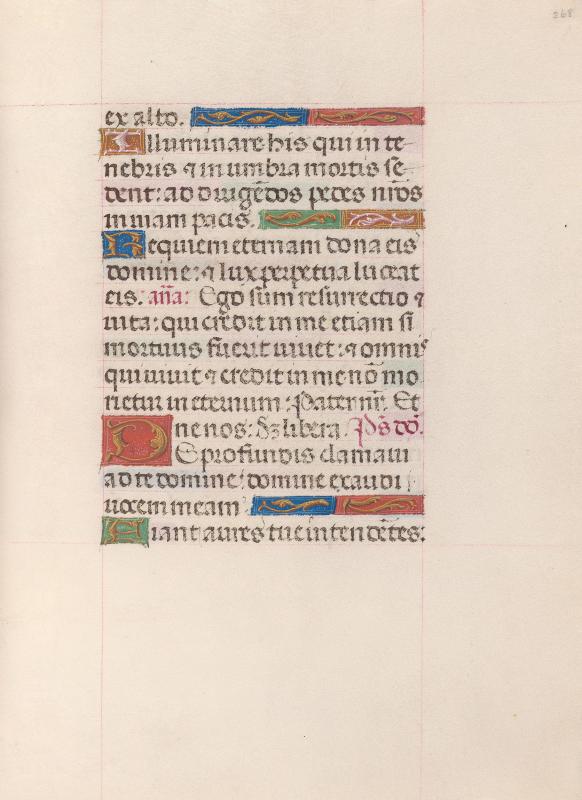 268
ex alto.
Illuminare his qui in te
nebris ⁊ in umbra mortis se
dent: ad dirigẽdos pedes nr̃os
in uiam pacis.
Requiem eternam dona eis
domine: ⁊ lux perpetua luceat
eis. añа: Ego sum resurrectio ⁊
uita: qui credit in me etiam si
mortuus fuerit uiuet: ⁊ omnis
qui uiuit ⁊ credit in me nõ mo
rietur in eternum: Pater nr̃. Et
ne nos: Sꝫ libera. Ps̃ dd̃.
De profundis clamaui
ad te domine: domine exaudi
uocem meam
Fiant aures tue intendẽtes: